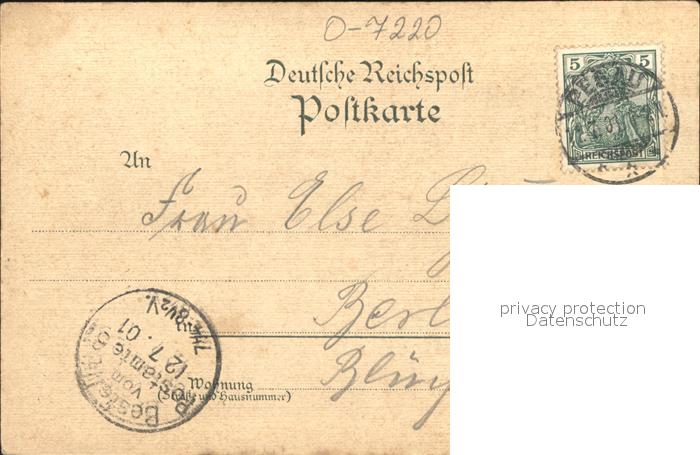 O-7220
Deutsche Reichspost
Postkarte
5 5
PEGAU
7. 01
REICHSPOST
An
Frau Else
Berl
privacy protection
Datenschutz
Bestellt
vom
Postamte
12 7. 01
7¼-8½ V.
Wohnung
(Straße und Hausnummer)